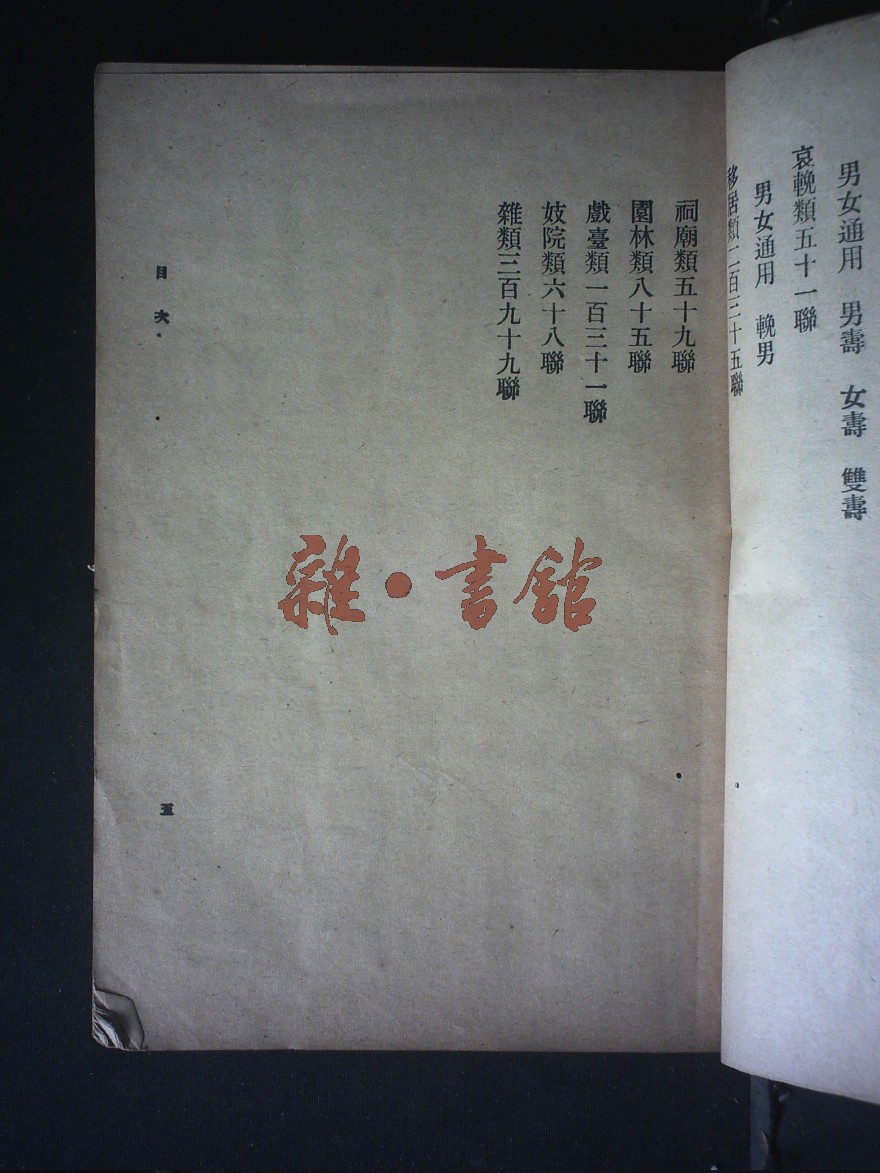 男女通用　男壽　女壽　雙壽
哀輓類五十一聯
男女通用　輓男
移居類二百三十五聯
祠廟類五十九聯
園林類八十五聯
戲臺類一百三十一聯
妓院類六十八聯
雜類三百九十九聯
目次
五
雜·書館